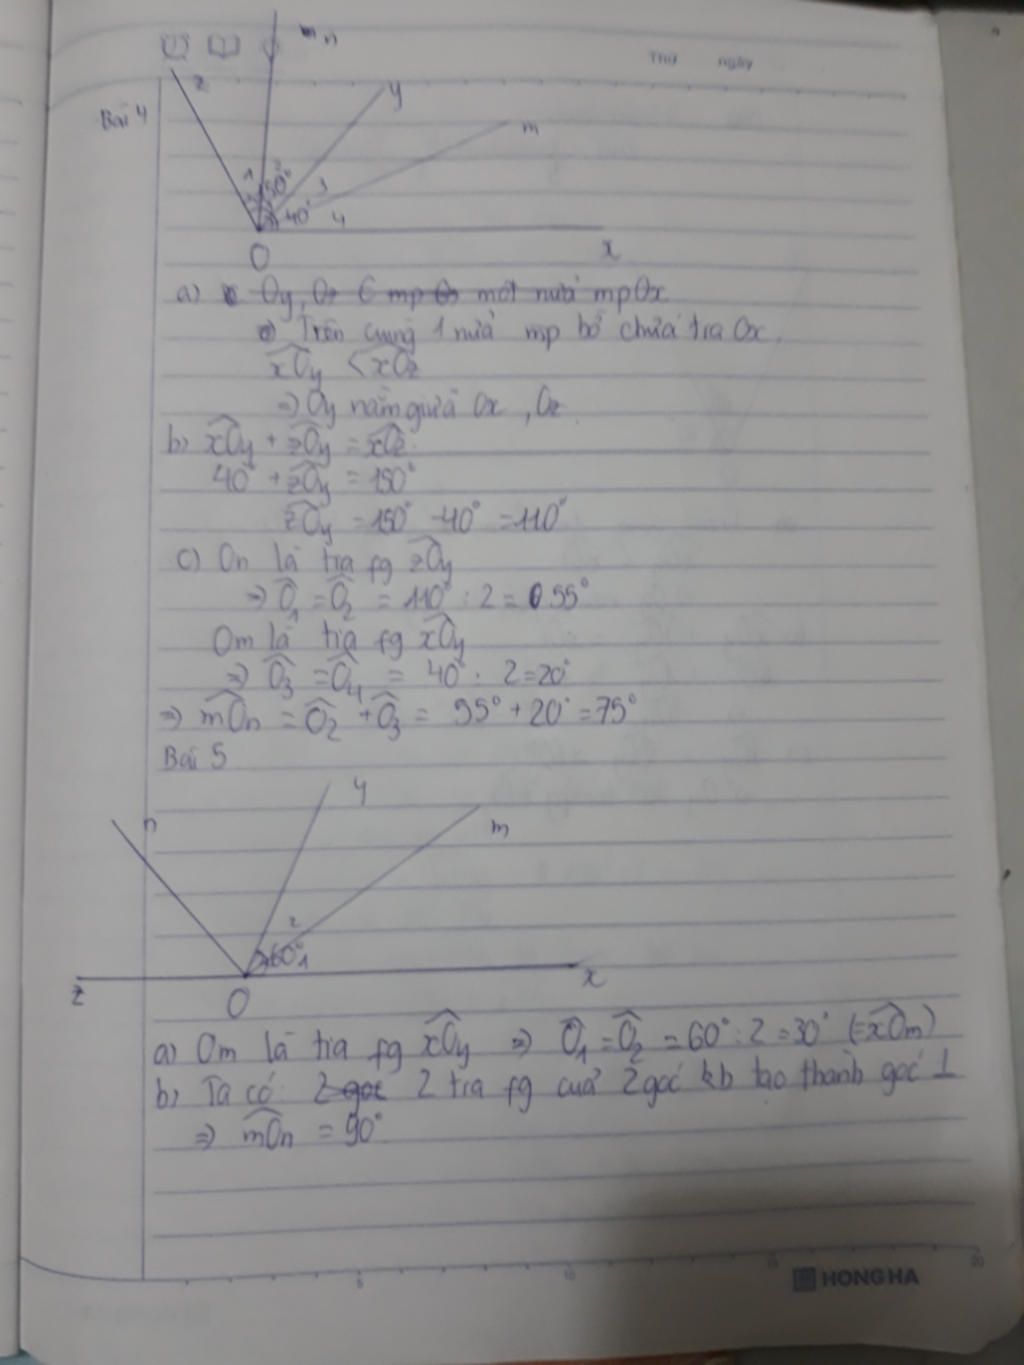 Thứ ngày
n
z
y
m
Bài 4
1
2
150°
3
40°
4
O
x
a) Oy, Oz € mp Ox một nửa mp Ox
Trên cùng 1 nửa mp bờ chứa tia Ox,
xOy < xOz
=> Oy nằm giữa Ox, Oz
b) xOy + zOy = xOz
40° + zOy = 150°
zOy = 150° - 40° = 110°
c) On là tia fg zOy
=> O1 = O2 = 110° : 2 = 55°
Om là tia fg xOy
=> O3 = O4 = 40° : 2 = 20°
=> mOn = O2 + O3 = 55° + 20° = 75°
Bài 5
y
n
m
2
60°
1
z
O
x
a) Om là tia fg xOy => O1 = O2 = 60° : 2 = 30° (= xOm)
b) Ta có: 2 góc 2 tia fg của 2 góc kb tạo thành góc ⊥
=> mOn = 90°
5 10 15 20
HONG HA